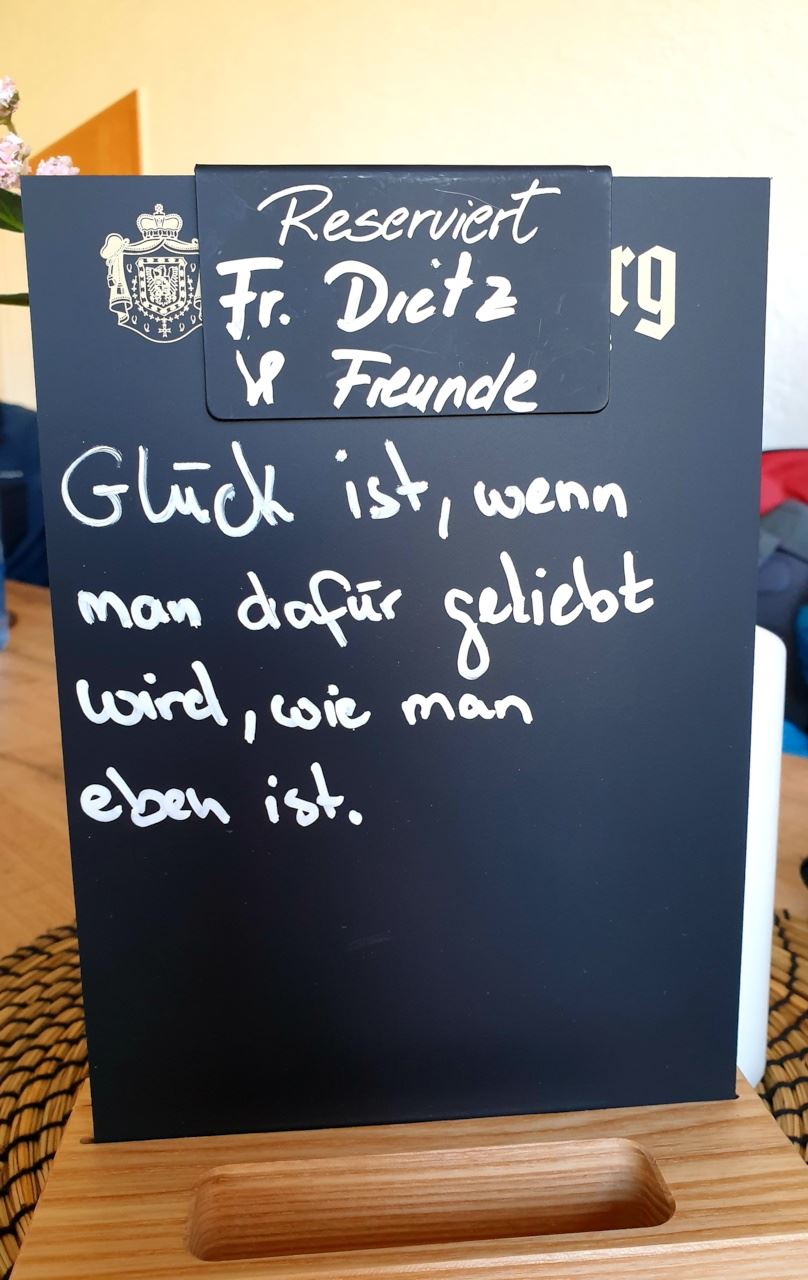 Reserviert
Fr. Dietz
& Freunde
rg
Glück ist, wenn
man dafür geliebt
wird, wie man
eben ist.